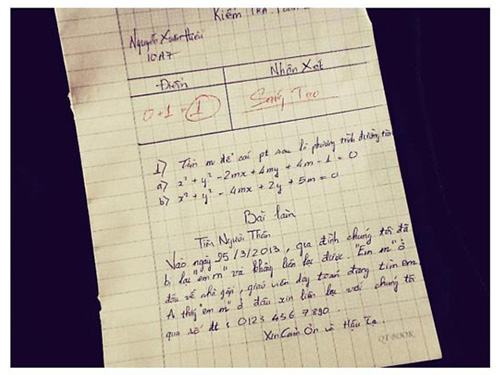 Kiểm Tra
Nguyễn Xuân Hiếu
10A7
Điểm
Nhận Xét
0+1=1
Sáng Tạo
1) Tìm m để các pt sau là phương trình đường tròn
a) x² + y² - 2mx + 4my + 4m - 1 = 0
b) x² + y² - 4mx + 2y + 5m = 0
Bài làm
Tìm Người Thân
Vào ngày 25/3/2013, gia đình chúng tôi đã
bị lạc "em m" và không liên lạc được. "Em m" ở
đâu về nhà gấp, giáo viên dạy toán đang tìm em
A thấy "em m" ở đâu xin liên lạc với chúng tôi
qua số đt: 0123 456 7890.
Xin Cảm Ơn và Hậu Tạ.
QT BOOK